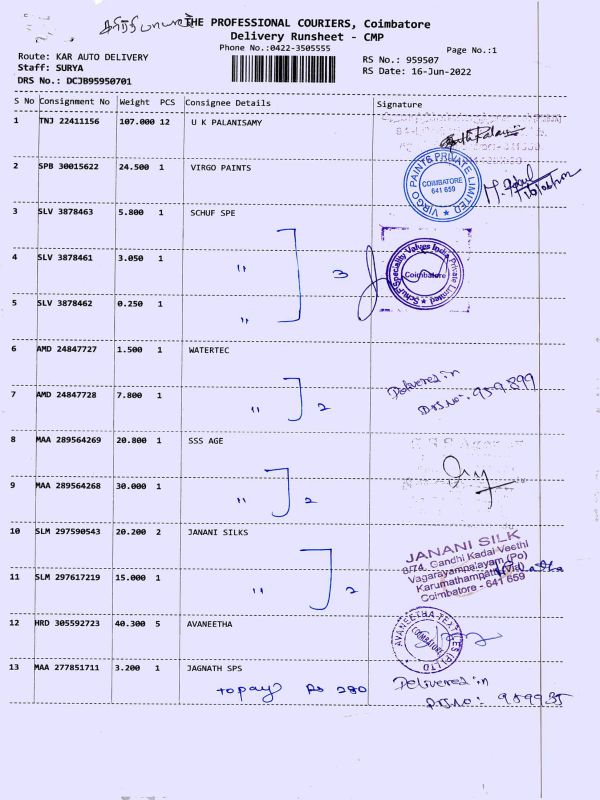 THE PROFESSIONAL COURIERS, Coimbatore
Delivery Runsheet - CMP
Phone No.:0422-3505555
Page No.:1
Route: KAR AUTO DELIVERY
RS No.: 959507
Staff: SURYA
RS Date: 16-Jun-2022
DRS No.: DCJB95950701
S No Consignment No Weight PCS Consignee Details Signature
1 TNJ 22411156 107.000 12 U K PALANISAMY
2 SPB 30015622 24.500 1 VIRGO PAINTS
VIRGO PAINTS PRIVATE LIMITED
COIMBATORE
641 659
3 SLV 3878463 5.800 1 SCHUF SPE
4 SLV 3878461 3.050 1 " 3
Schuf Speciality Valves India Private Limited
Coimbatore
5 SLV 3878462 0.250 1 "
6 AMD 24847727 1.500 1 WATERTEC
Delivered in
DRS No: 959899
7 AMD 24847728 7.800 1 " 2
8 MAA 289564269 20.800 1 SSS AGE
9 MAA 289564268 30.000 1 " 2
10 SLM 297590543 20.200 2 JANANI SILKS
JANANI SILK
8/74, Gandhi Kadai Veethi
Vagarayampalayam (Po)
Karumathampatti (Via)
Coimbatore - 641 659
11 SLM 297617219 15.000 1 " 2
12 HRD 305592723 40.300 5 AVANEETHA
AVANEETHA TEXTILES (P) LTD
COIMBATORE
13 MAA 277851711 3.200 1 JAGNATH SPS
to pay Rs 280
Delivered in
DRS No: 959935